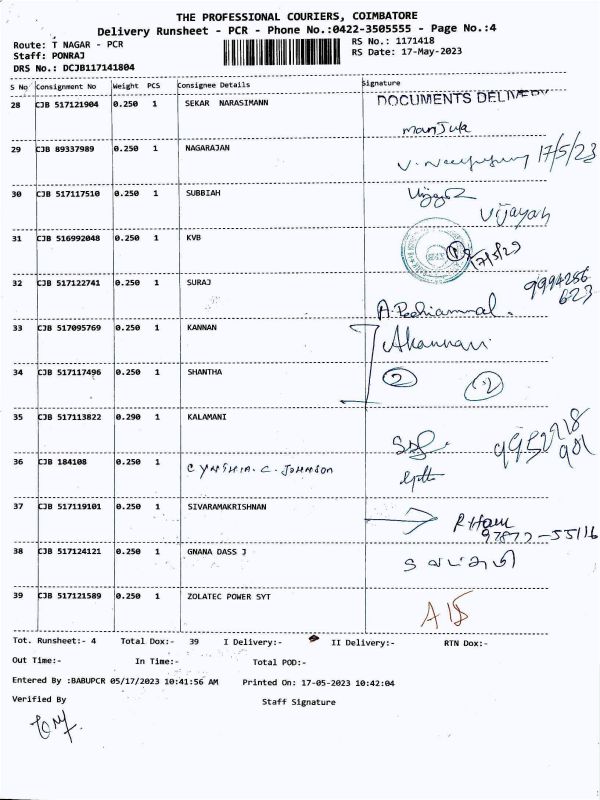 THE PROFESSIONAL COURIERS, COIMBATORE
Delivery Runsheet - PCR - Phone No.:0422-3505555 - Page No.:4
Route: T NAGAR - PCR
RS No.: 1171418
Staff: PONRAJ
RS Date: 17-May-2023
DRS No.: DCJB117141804
S No Consignment No Weight PCS Consignee Details Signature
28 CJB 517121904 0.250 1 SEKAR NARASIMANN DOCUMENTS DELIVERY
manjula
29 CJB 89337989 0.250 1 NAGARAJAN 17/5/23
30 CJB 517117510 0.250 1 SUBBIAH
Vijayan
31 CJB 516992048 0.250 1 KVB 17/5/23
32 CJB 517122741 0.250 1 SURAJ 9994286
623
33 CJB 517095769 0.250 1 KANNAN AKannan
34 CJB 517117496 0.250 1 SHANTHA 2
35 CJB 517113822 0.290 1 KALAMANI
36 CJB 184108 0.250 1 CYNTHIA.C.JOHNSON
37 CJB 517119101 0.250 1 SIVARAMAKRISHNAN
38 CJB 517124121 0.250 1 GNANA DASS J
39 CJB 517121589 0.250 1 ZOLATEC POWER SYT
Tot. Runsheet:- 4 Total Dox:- 39 I Delivery:- II Delivery:- RTN Dox:-
Out Time:- In Time:- Total POD:-
Entered By :BABUPCR 05/17/2023 10:41:56 AM Printed On: 17-05-2023 10:42:04
Verified By Staff Signature